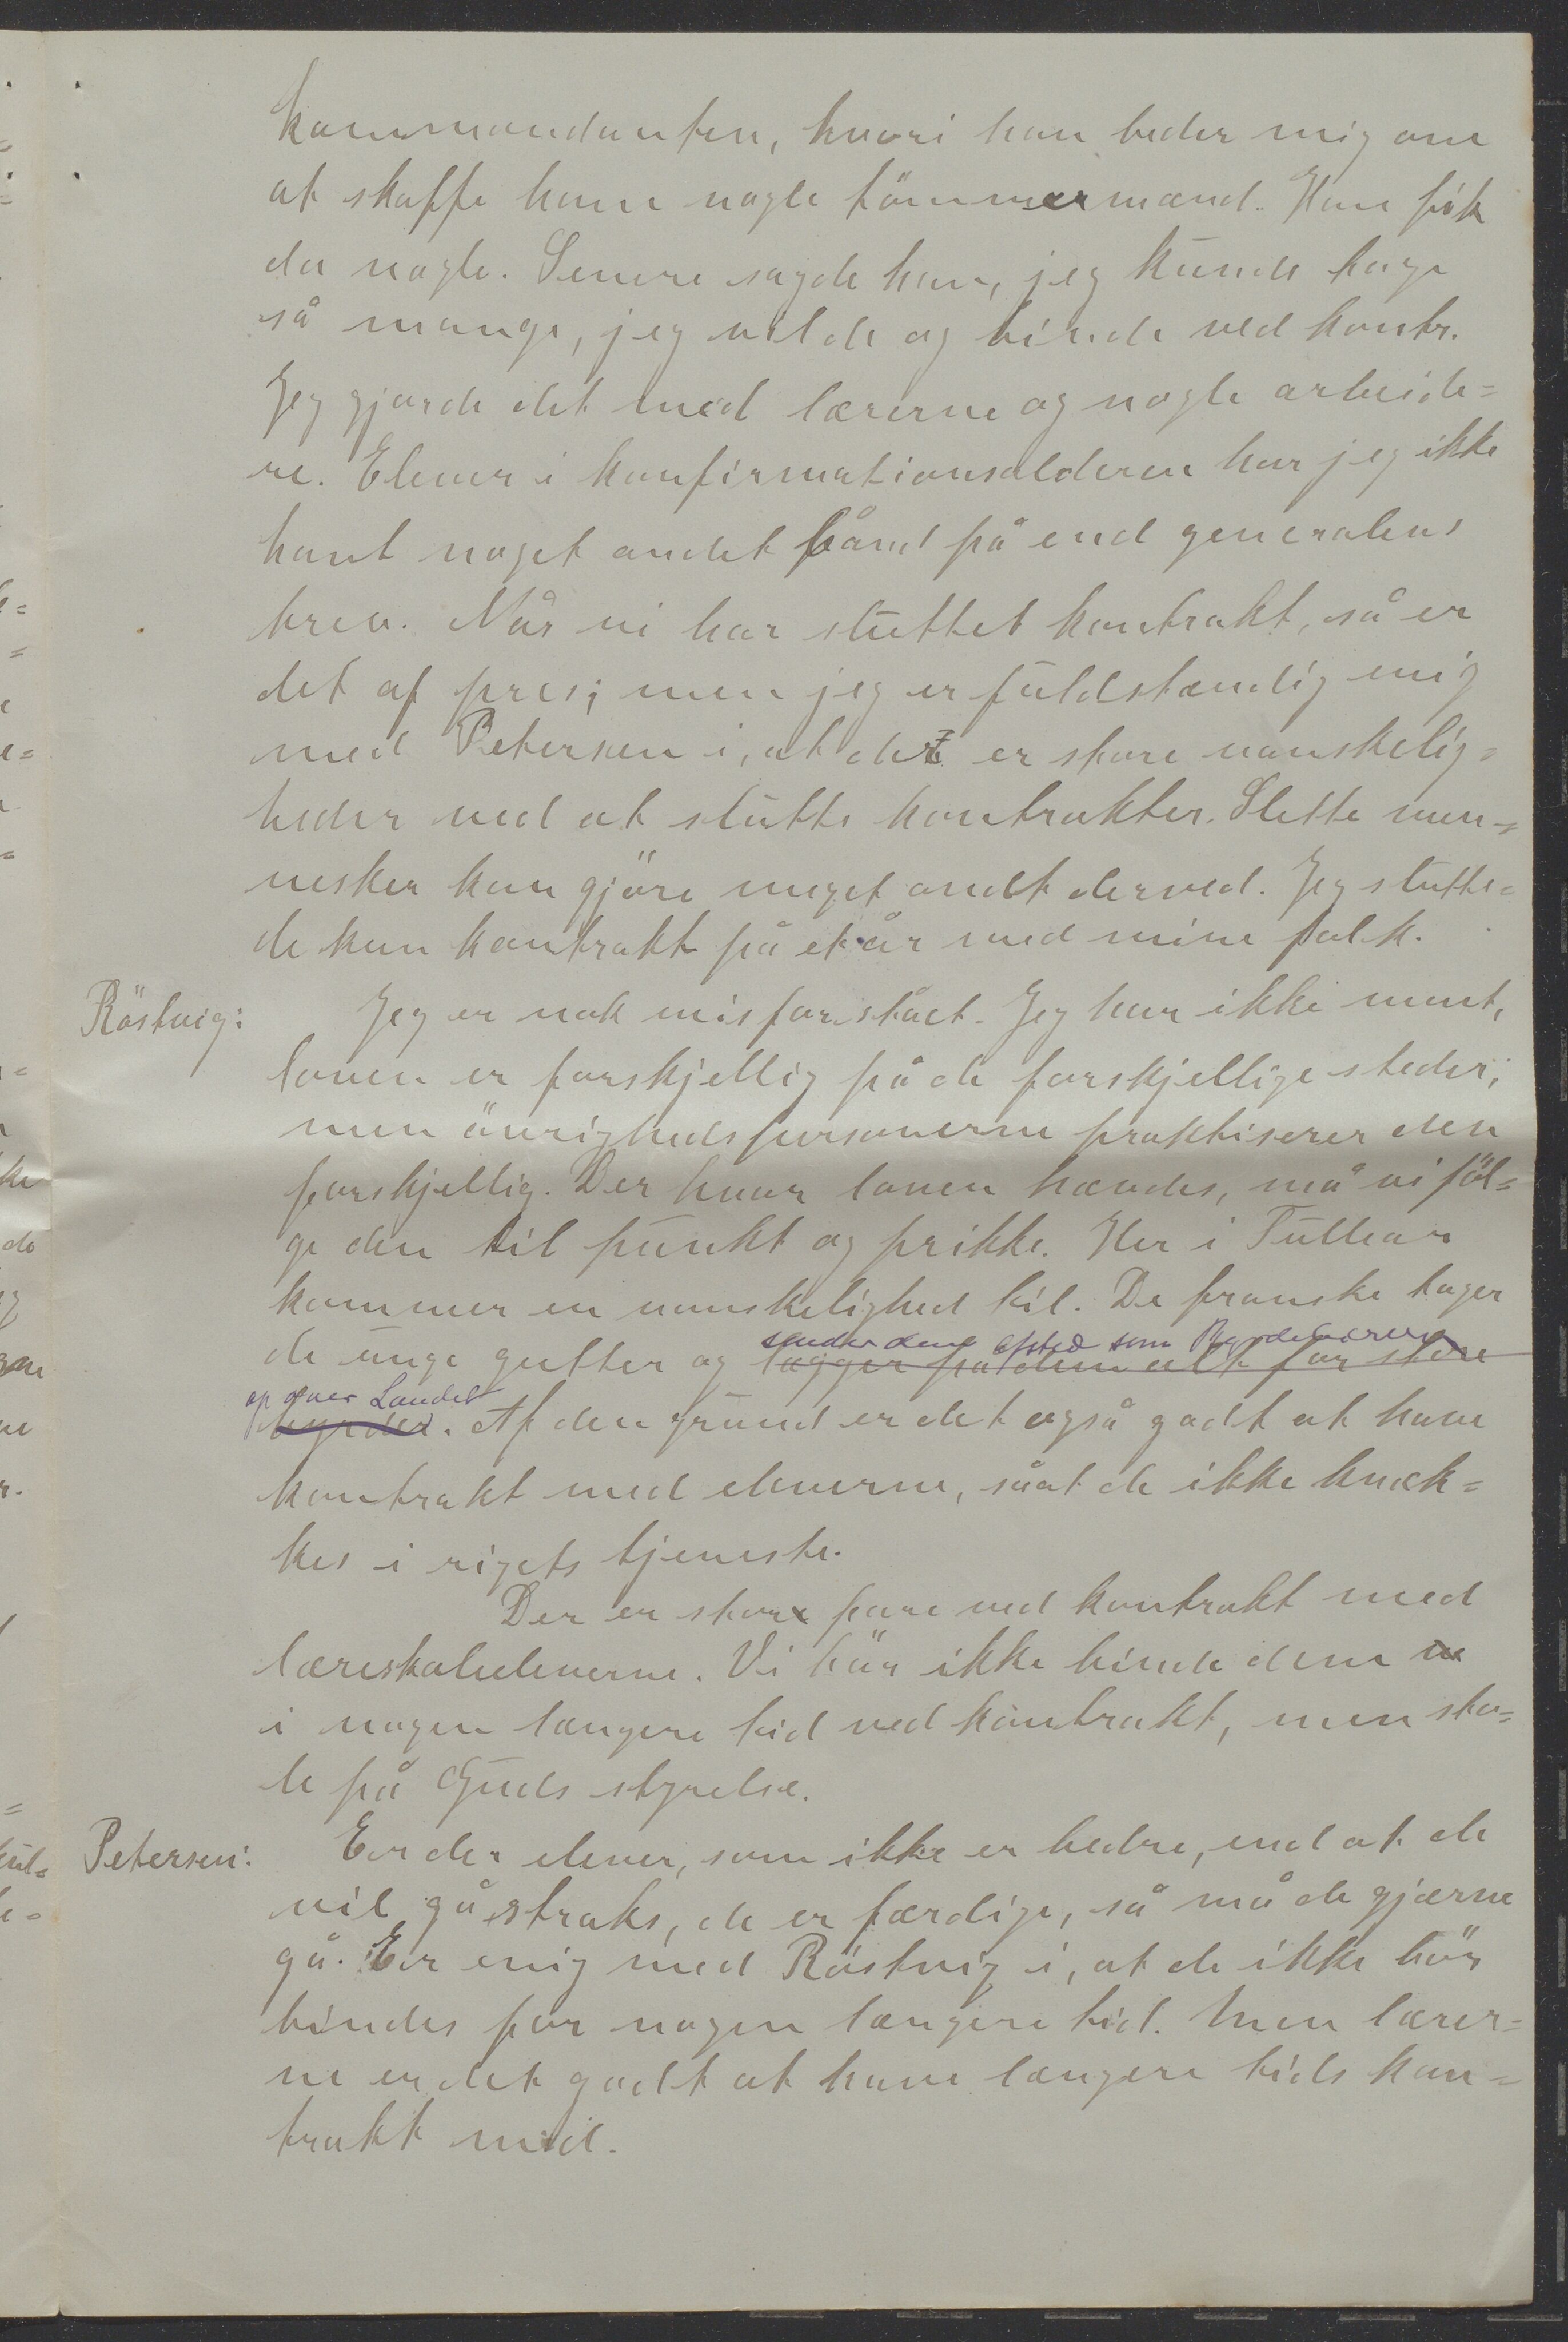 kommandanten, hvori han beder mig om
at skaffe ham nogle tömmermænd. Han fik
da nogle. Senere sagde han, jeg kunde tage
så mange, jeg vilde og binde ved kontr.
Jeg gjorde det med lærerne og nogle arbeide=
re. Elever i konfirmationsalderen har jeg ikke
havt noget andet bånd på end generalens
brev. Når vi har sluttet kontrakt, så er
det af pres; men jeg er fuldstændig enig
med Petersen i, at det er store vanskelig=
heder ved at slutte kontrakter. Slette men=
nesker kan gjöre meget ondt derved. Jeg slutte=
de kun kontrakt på et år med mine folk.
Röstvig: Jeg er nok misforstået. Jeg har ikke ment,
loven er forskjellig på de forskjellige steder;
men övrighedspersonerne praktiserer den
forskjellig. Der hvor loven hævdes, må vi föl=
ge den til punkt og prikke. Her i Tullear
kommer en vanskelighed til. De franske tager
sender dem afsted som Byrdebærere
de unge gutter og lægger på dem alt for store
op over Landet
byrder. Af den grund er det også godt at have
kontrakt med eleverne, såat de ikke knæk=
kes i rigets tjeneste.
Der er stor fare ved kontrakt med
læreskoleeleverne. Vi bör ikke binde dem
i nogen længere tid ved kontrakt, men sto=
le på Guds styrelse.
Petersen: Er der elever, som ikke er bedre, end at de
vil gå straks, de er færdige, så må de gjærne
gå. Er enig med Röstvig i, at de ikke bör
bindes for nogen længere tid. Men lærer=
ne er det godt at have længere tids kon=
trakt med.